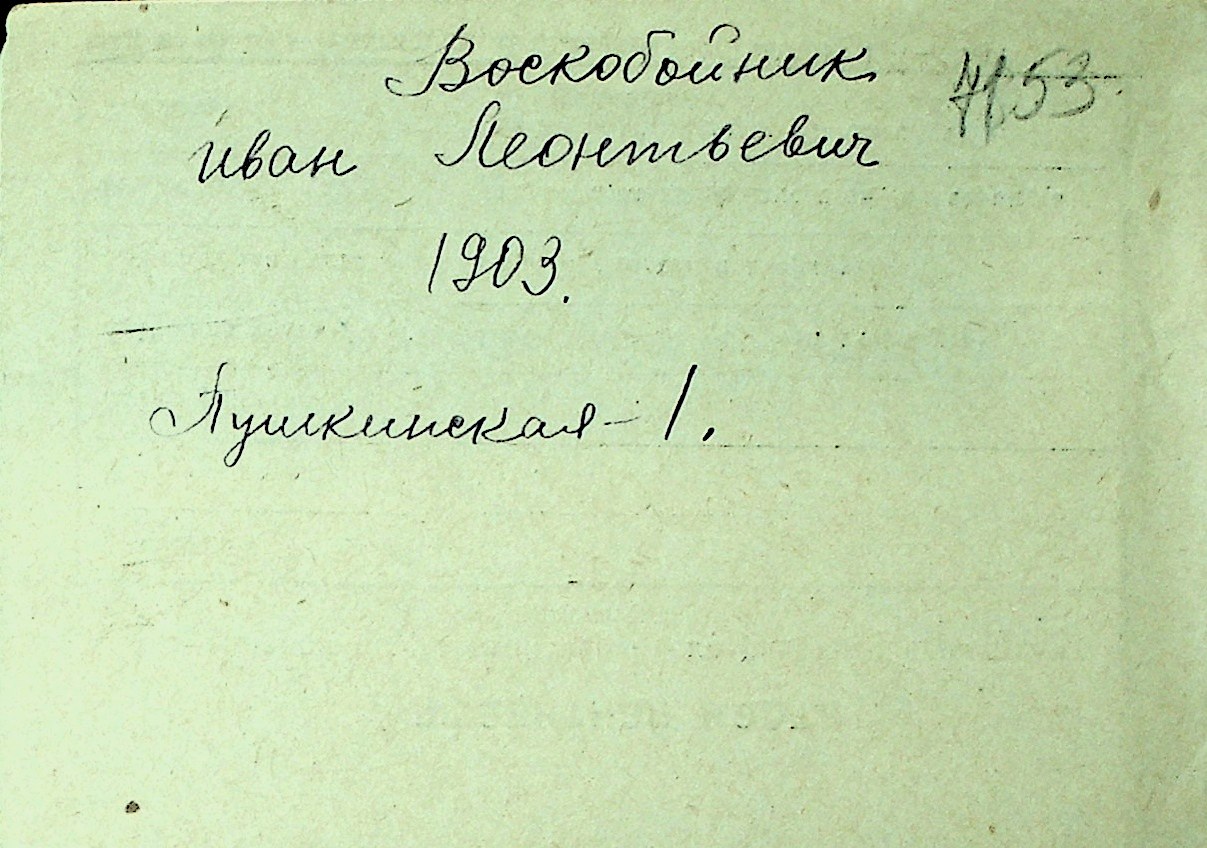 Воскобойник
Иван Леонтьевич
1903.
Пушкинская - 1.